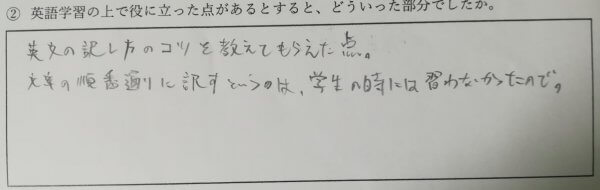 ② 英語学習の上で役に立った点があるとすると、どういった部分でしたか。
英文の訳し方のコツを教えてもらえた点。
文章の順番通りに訳すというのは、学生の時には習わなかったので。